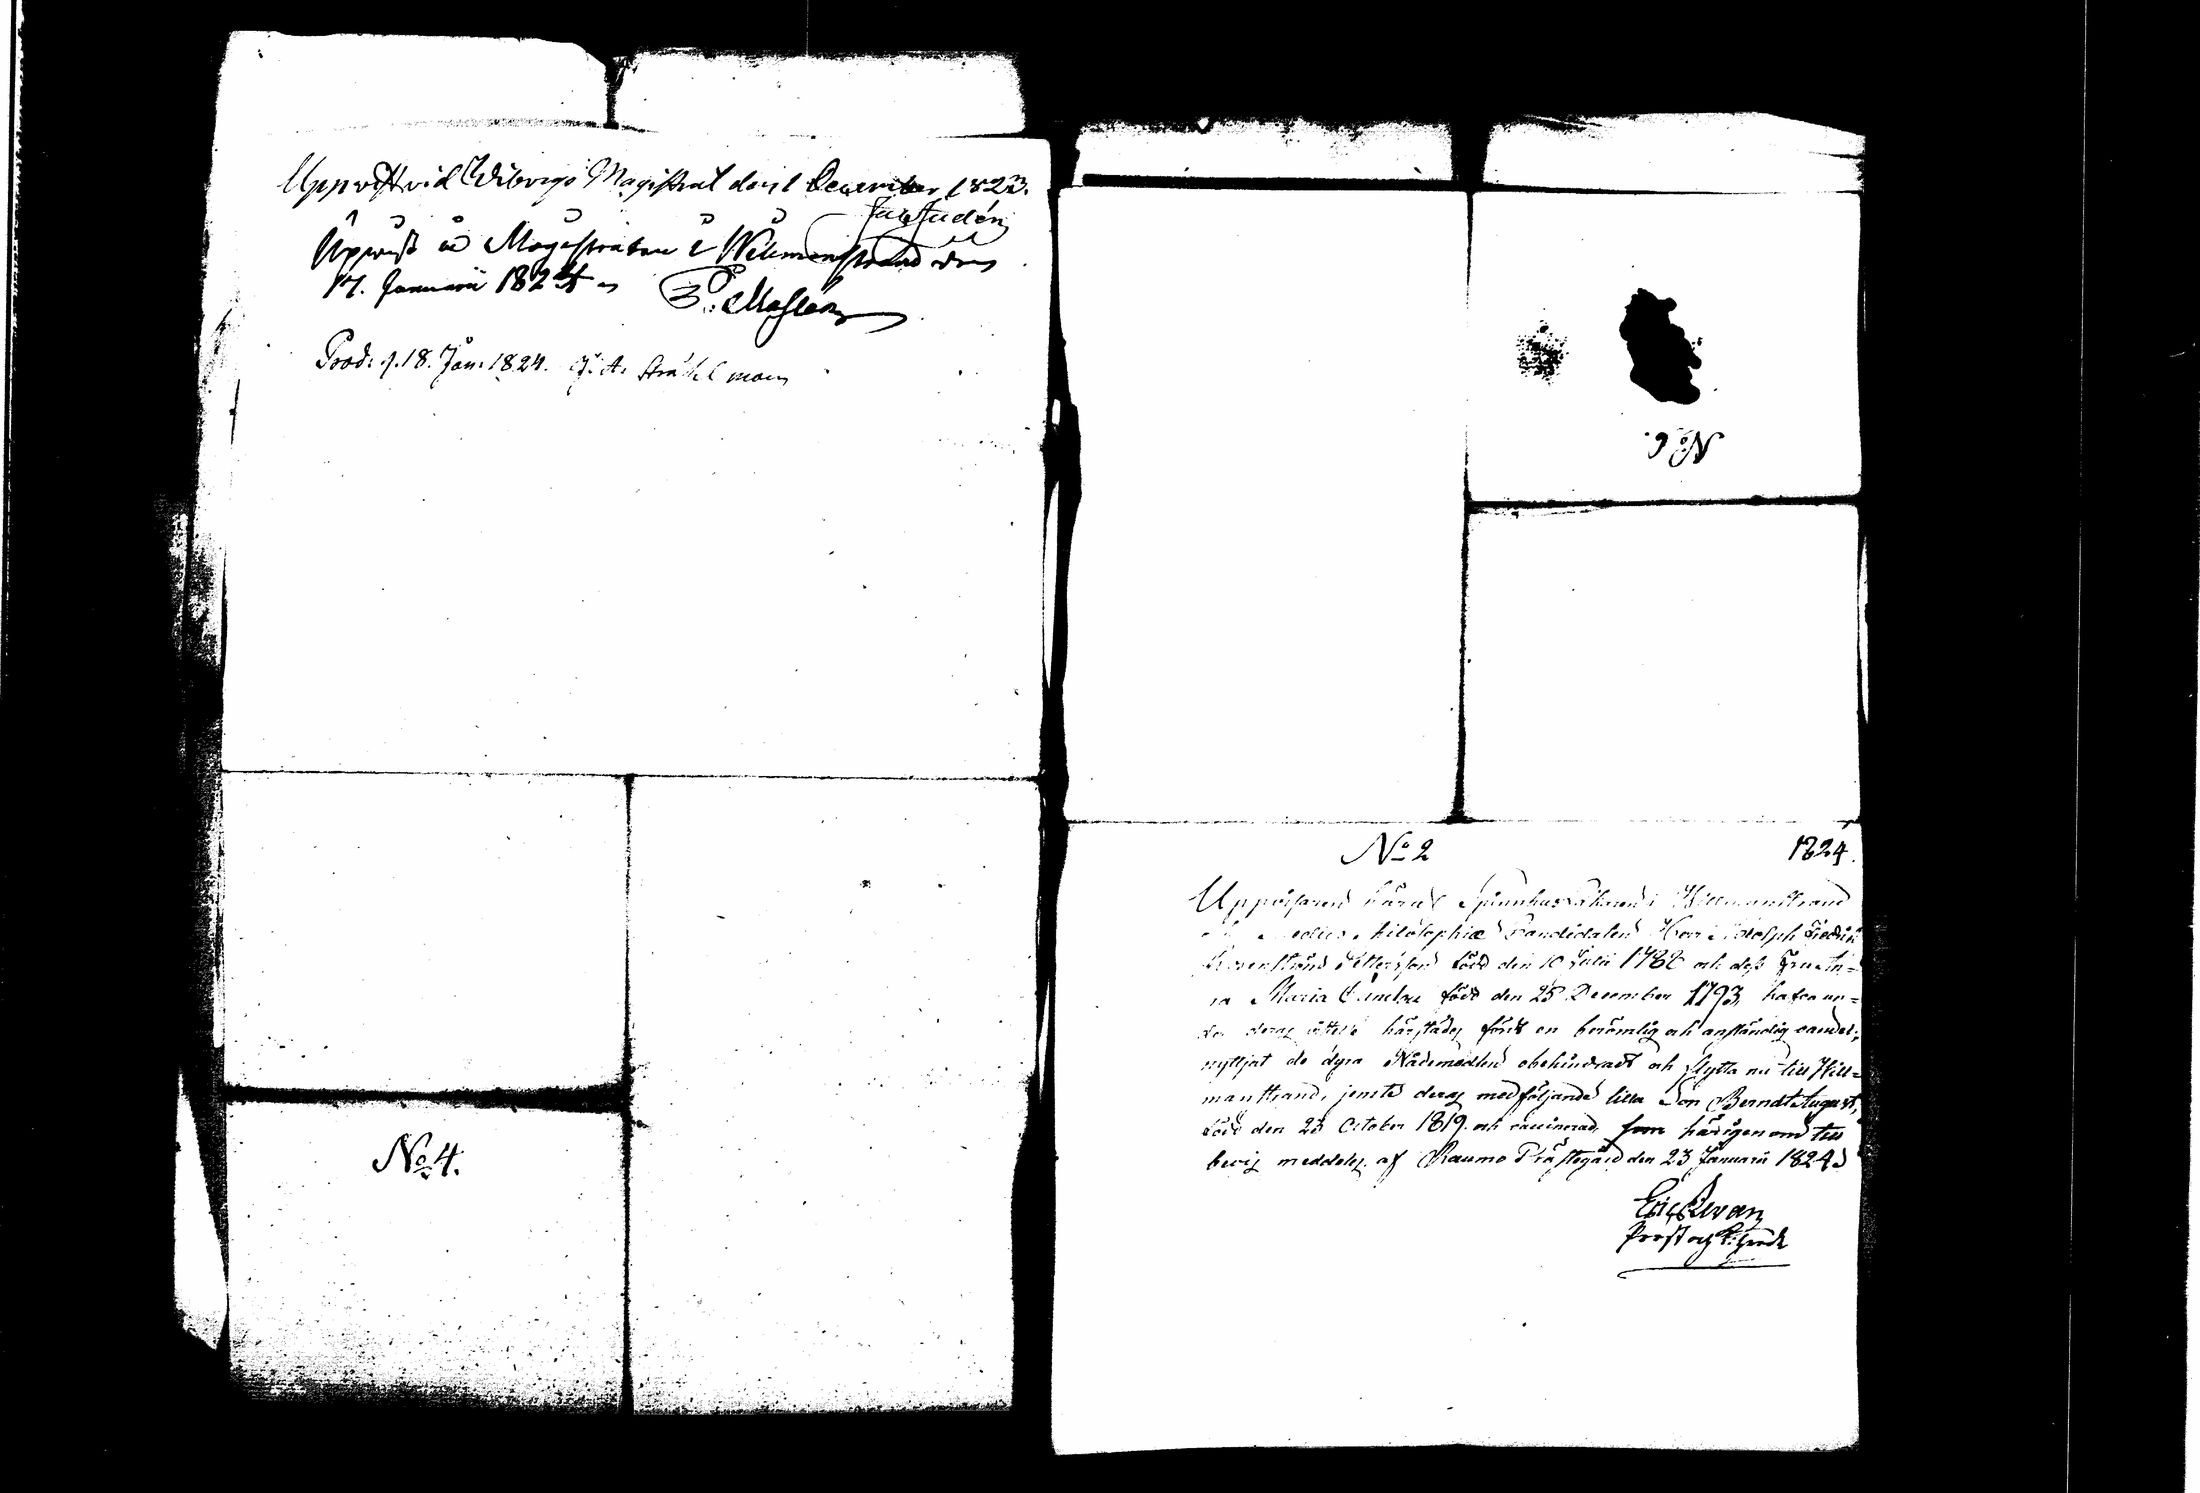 Uppvist vid Wiborgs Magistrat den 1 December 1823.
Upvist å Magistraten i Wilmanstrand den
17. Januarii 1824
Prod. d. 18. Jan. 1824. J. A. Stråhlman
No 4.
No 6.
No 2 1824.
Uppvisaren häraf Spinnhus i Willmanstrand
Philosophiæ Candidaten Herr Adolph Fredrik
född den 10 Julii 1788 och dess Fru An-
na Maria född den 25 December 1793 hafva un-
der deras härstädes fördt en berömlig och anständig vandel,
nyttjat de dyra Nådemedlen obehindradt och flytta nu till Will-
manstrand, jemte deras medföljande lilla Son Berndt August,
född den 23 October 1819. och vaccinerad. som härigenom till
bevis meddelas af Raumo Prästegård den 23 Januarii 1824.
Eric
Prost och